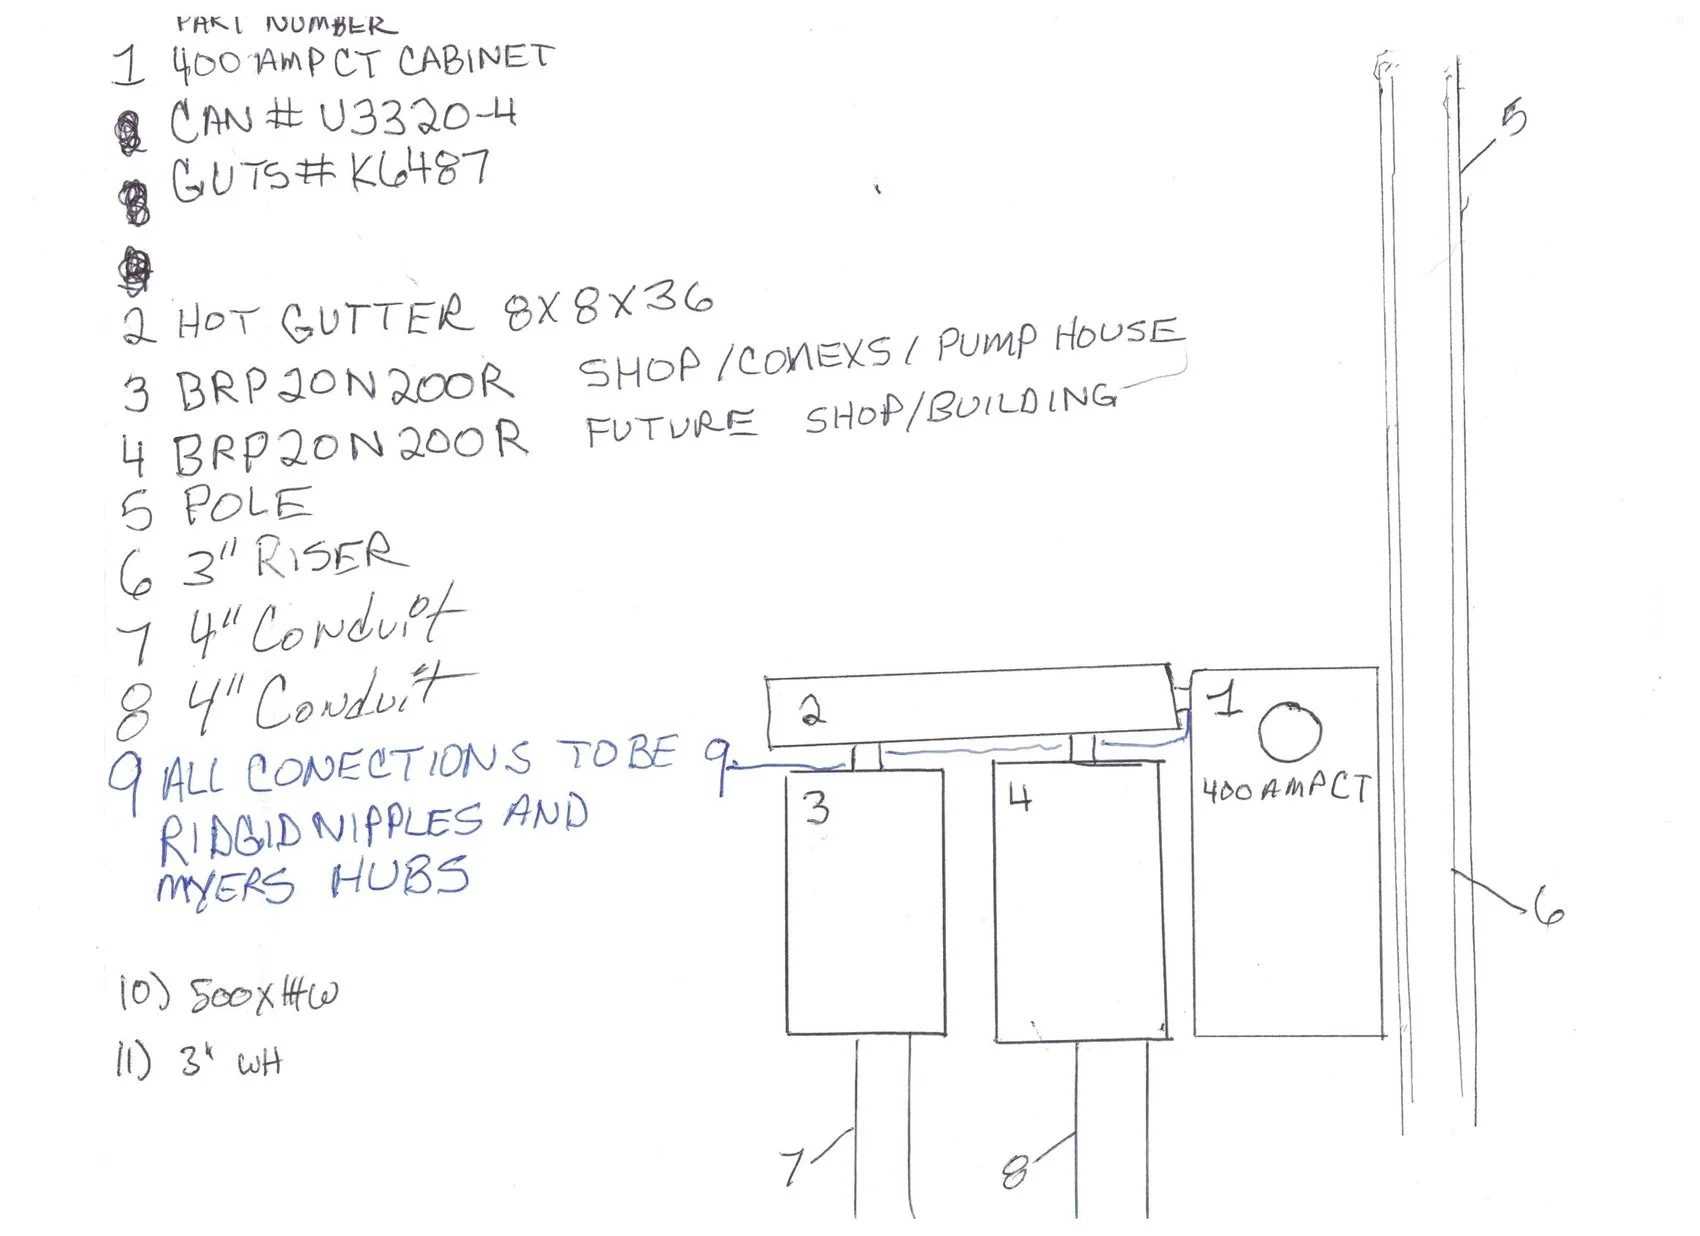 PART NUMBER
1 400 AMP CT CABINET
CAN # U3320-4
GUTS# K6487
2 HOT GUTTER 8X8X36
3 BRP20N200R SHOP/CONEXS/PUMP HOUSE
4 BRP20N200R FUTURE SHOP/BUILDING
5 POLE
6 3" RISER
7 4" Conduit
8 4" Conduit
9 ALL CONECTIONS TO BE
RIDGID NIPPLES AND
MYERS HUBS
10) 500XHHW
11) 3" WH
5
2
1
9
400 AMP CT
3
4
6
7
8